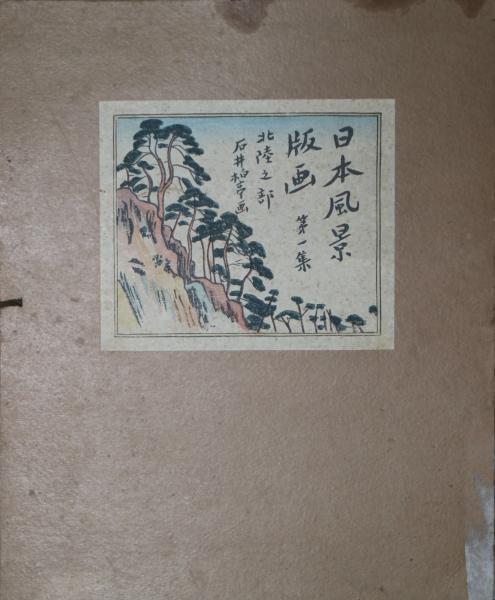 日本風景
版画
第一集
北陸之部
石井柏亭画